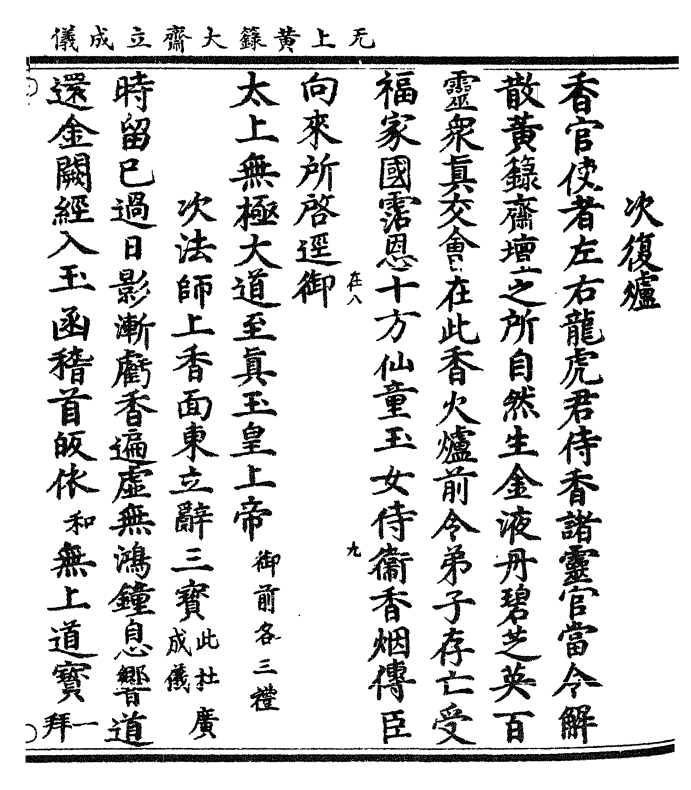 无上黃籙大齋立成儀
次復爐
香官使者左右龍虎君侍香諸靈官當令解
散黃籙齋壇之所自然生金液丹碧芝英百
靈衆眞交會在此香火爐前令弟子存亡受
福家國霑恩十方仙童玉女侍衞香烟傳臣
在八 九
向來所啓逕御
太上無極大道至眞玉皇上帝 御前各三禮
次法師上香面東立辭三寶 此杜廣成儀
時留已過日影漸虧香遍虛無鴻鐘息響道
還金闕經入玉函稽首皈依 和 無上道寶 一拜